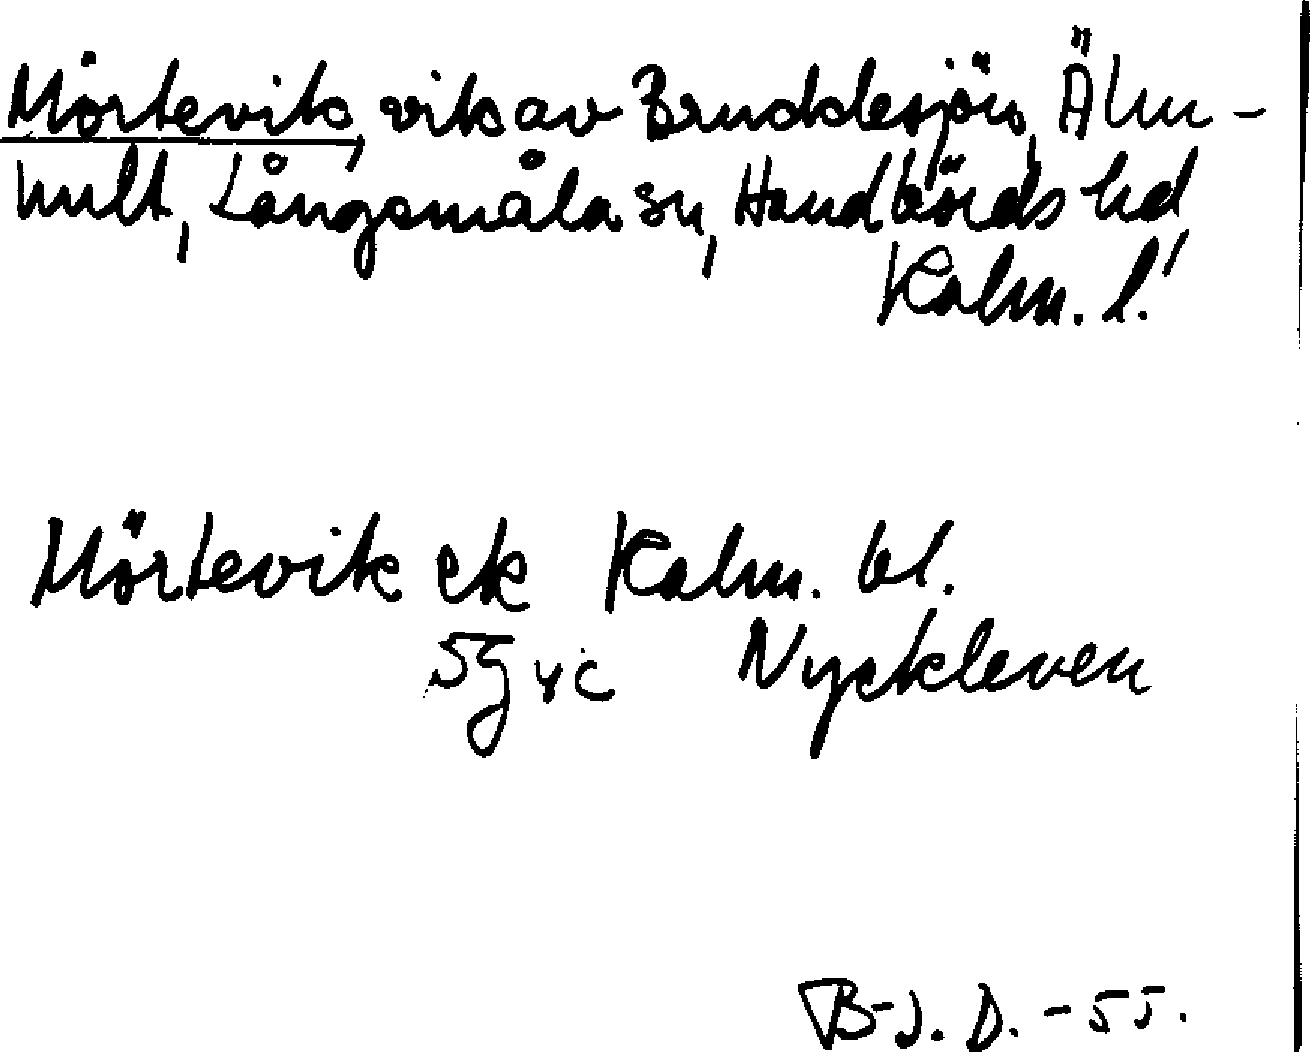 Mörtevik, vik av Bruddesjön, Älm-
hult, Långasmåla sn, Handbörds hd
Kalm. l.
Mörtevik ek Kalm. bl.
5g vc Nyckleven
B-J. D. -55.